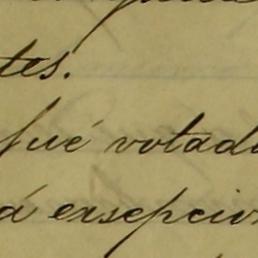 tes.
fué votad
á exsepcio